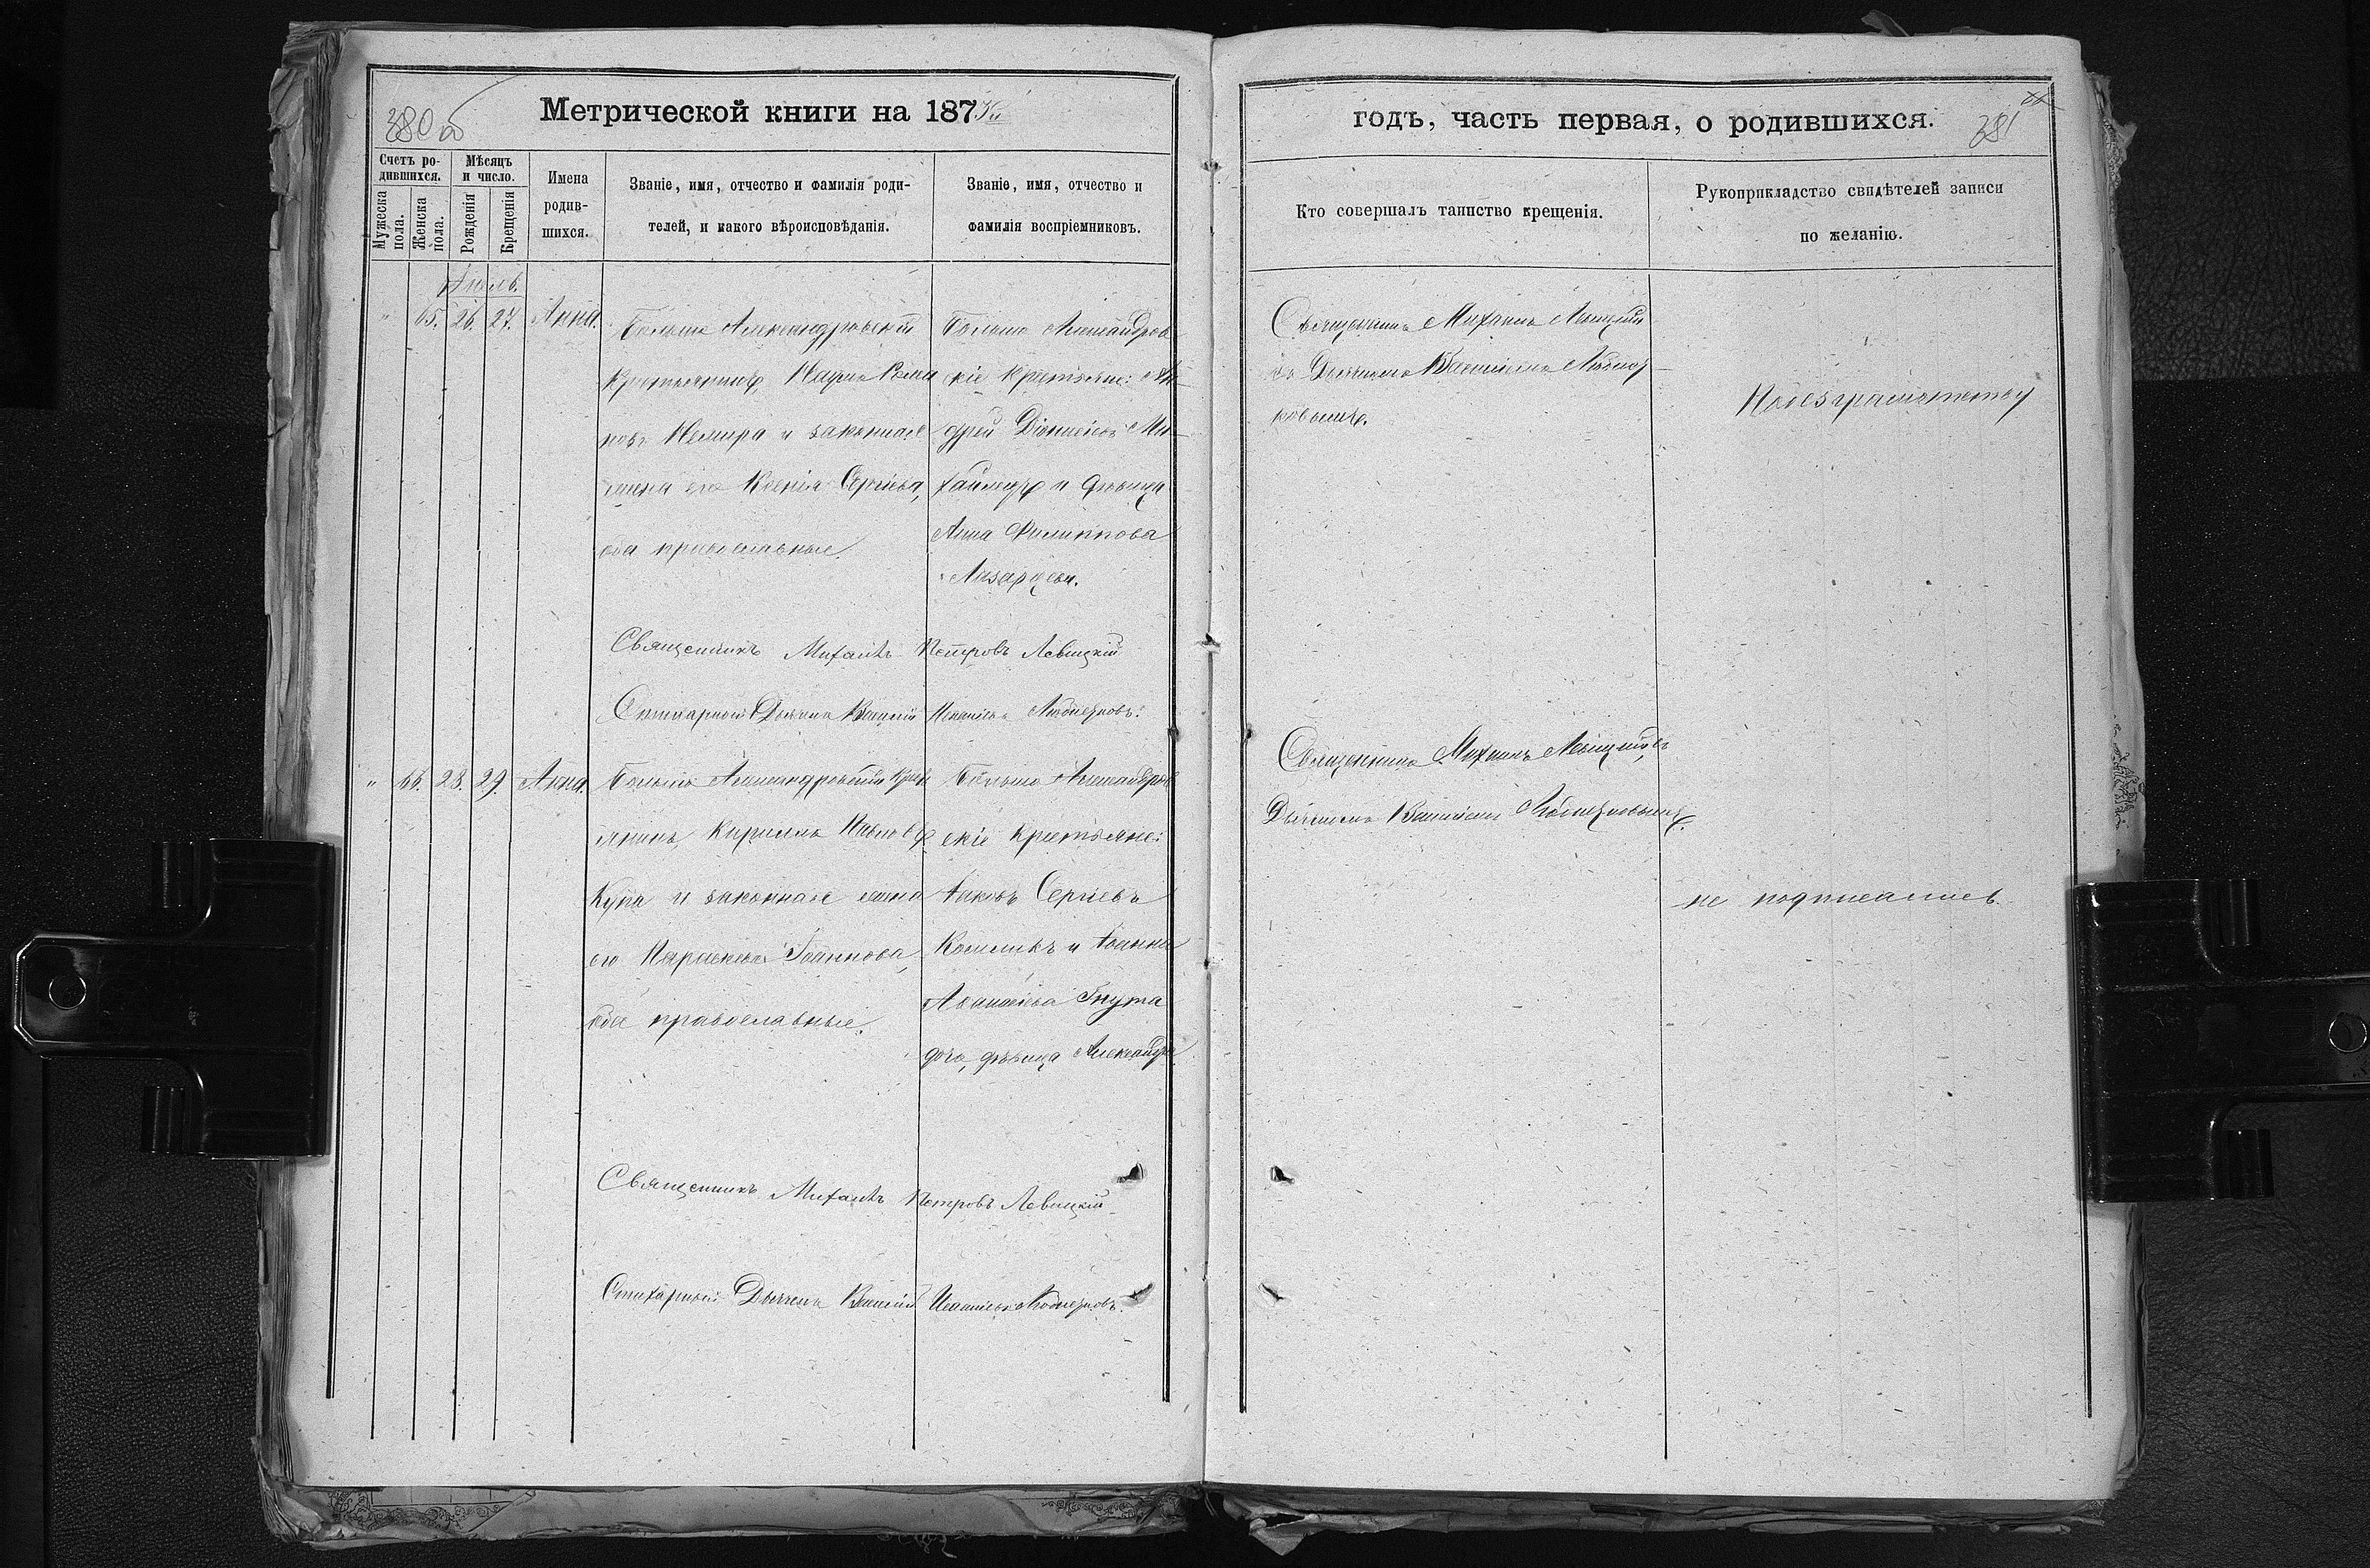 380 об
Метрической книги на 187
Счетъ ро-
дившихся.
Мужеска
пола.
Женска
пола.
Мѣсяцъ
и число.
Рожденія
Крещенія
Имена
родив-
шихся.
Званіе, имя, отчество и фамилія роди-
телей, и какого вѣроисповѣданія.
Званіе, имя, отчество и
фамилія воспріемниковъ.
Іюль.
" 65. 26. 27. Анна.
Больше Александровскій
крестьянинъ,
новъ и законная
жена его Ксенія Сергіева,
оба православные.
Больше Александров
скіе крестьяне: Ан
дрей Діонисіевъ Ми
хайлецъ и дѣвица
Анна Филиппова
Лазарцева.
Священникъ Михаилъ Петровъ Левицкій
Стихарный Дьячекъ Василій
" 66. 28. 29. Анна.
Больше Александровскій крест
янинъ, Кириллъ Павловъ
Купа и законная жена
его Параскева Іоаннова,
оба православные.
Больше Александров
скіе крестьяне:
Іаковъ Сергіевъ
и Іоанна
дочь, дѣвица Александра
Священникъ Михаилъ Петровъ Левицкій
Стихарный Дьячекъ Василій
годъ, часть первая, о родившихся.
381
Кто совершалъ таинство крещенія.
Рукоприкладство свидѣтелей записи
по желанію.
Священникъ Михаилъ Левицкій
съ Дьячкомъ Василіемъ
ковымъ.
Священникъ Михаилъ Левицкій съ
Дьячкомъ Василіемъ
не подписались.